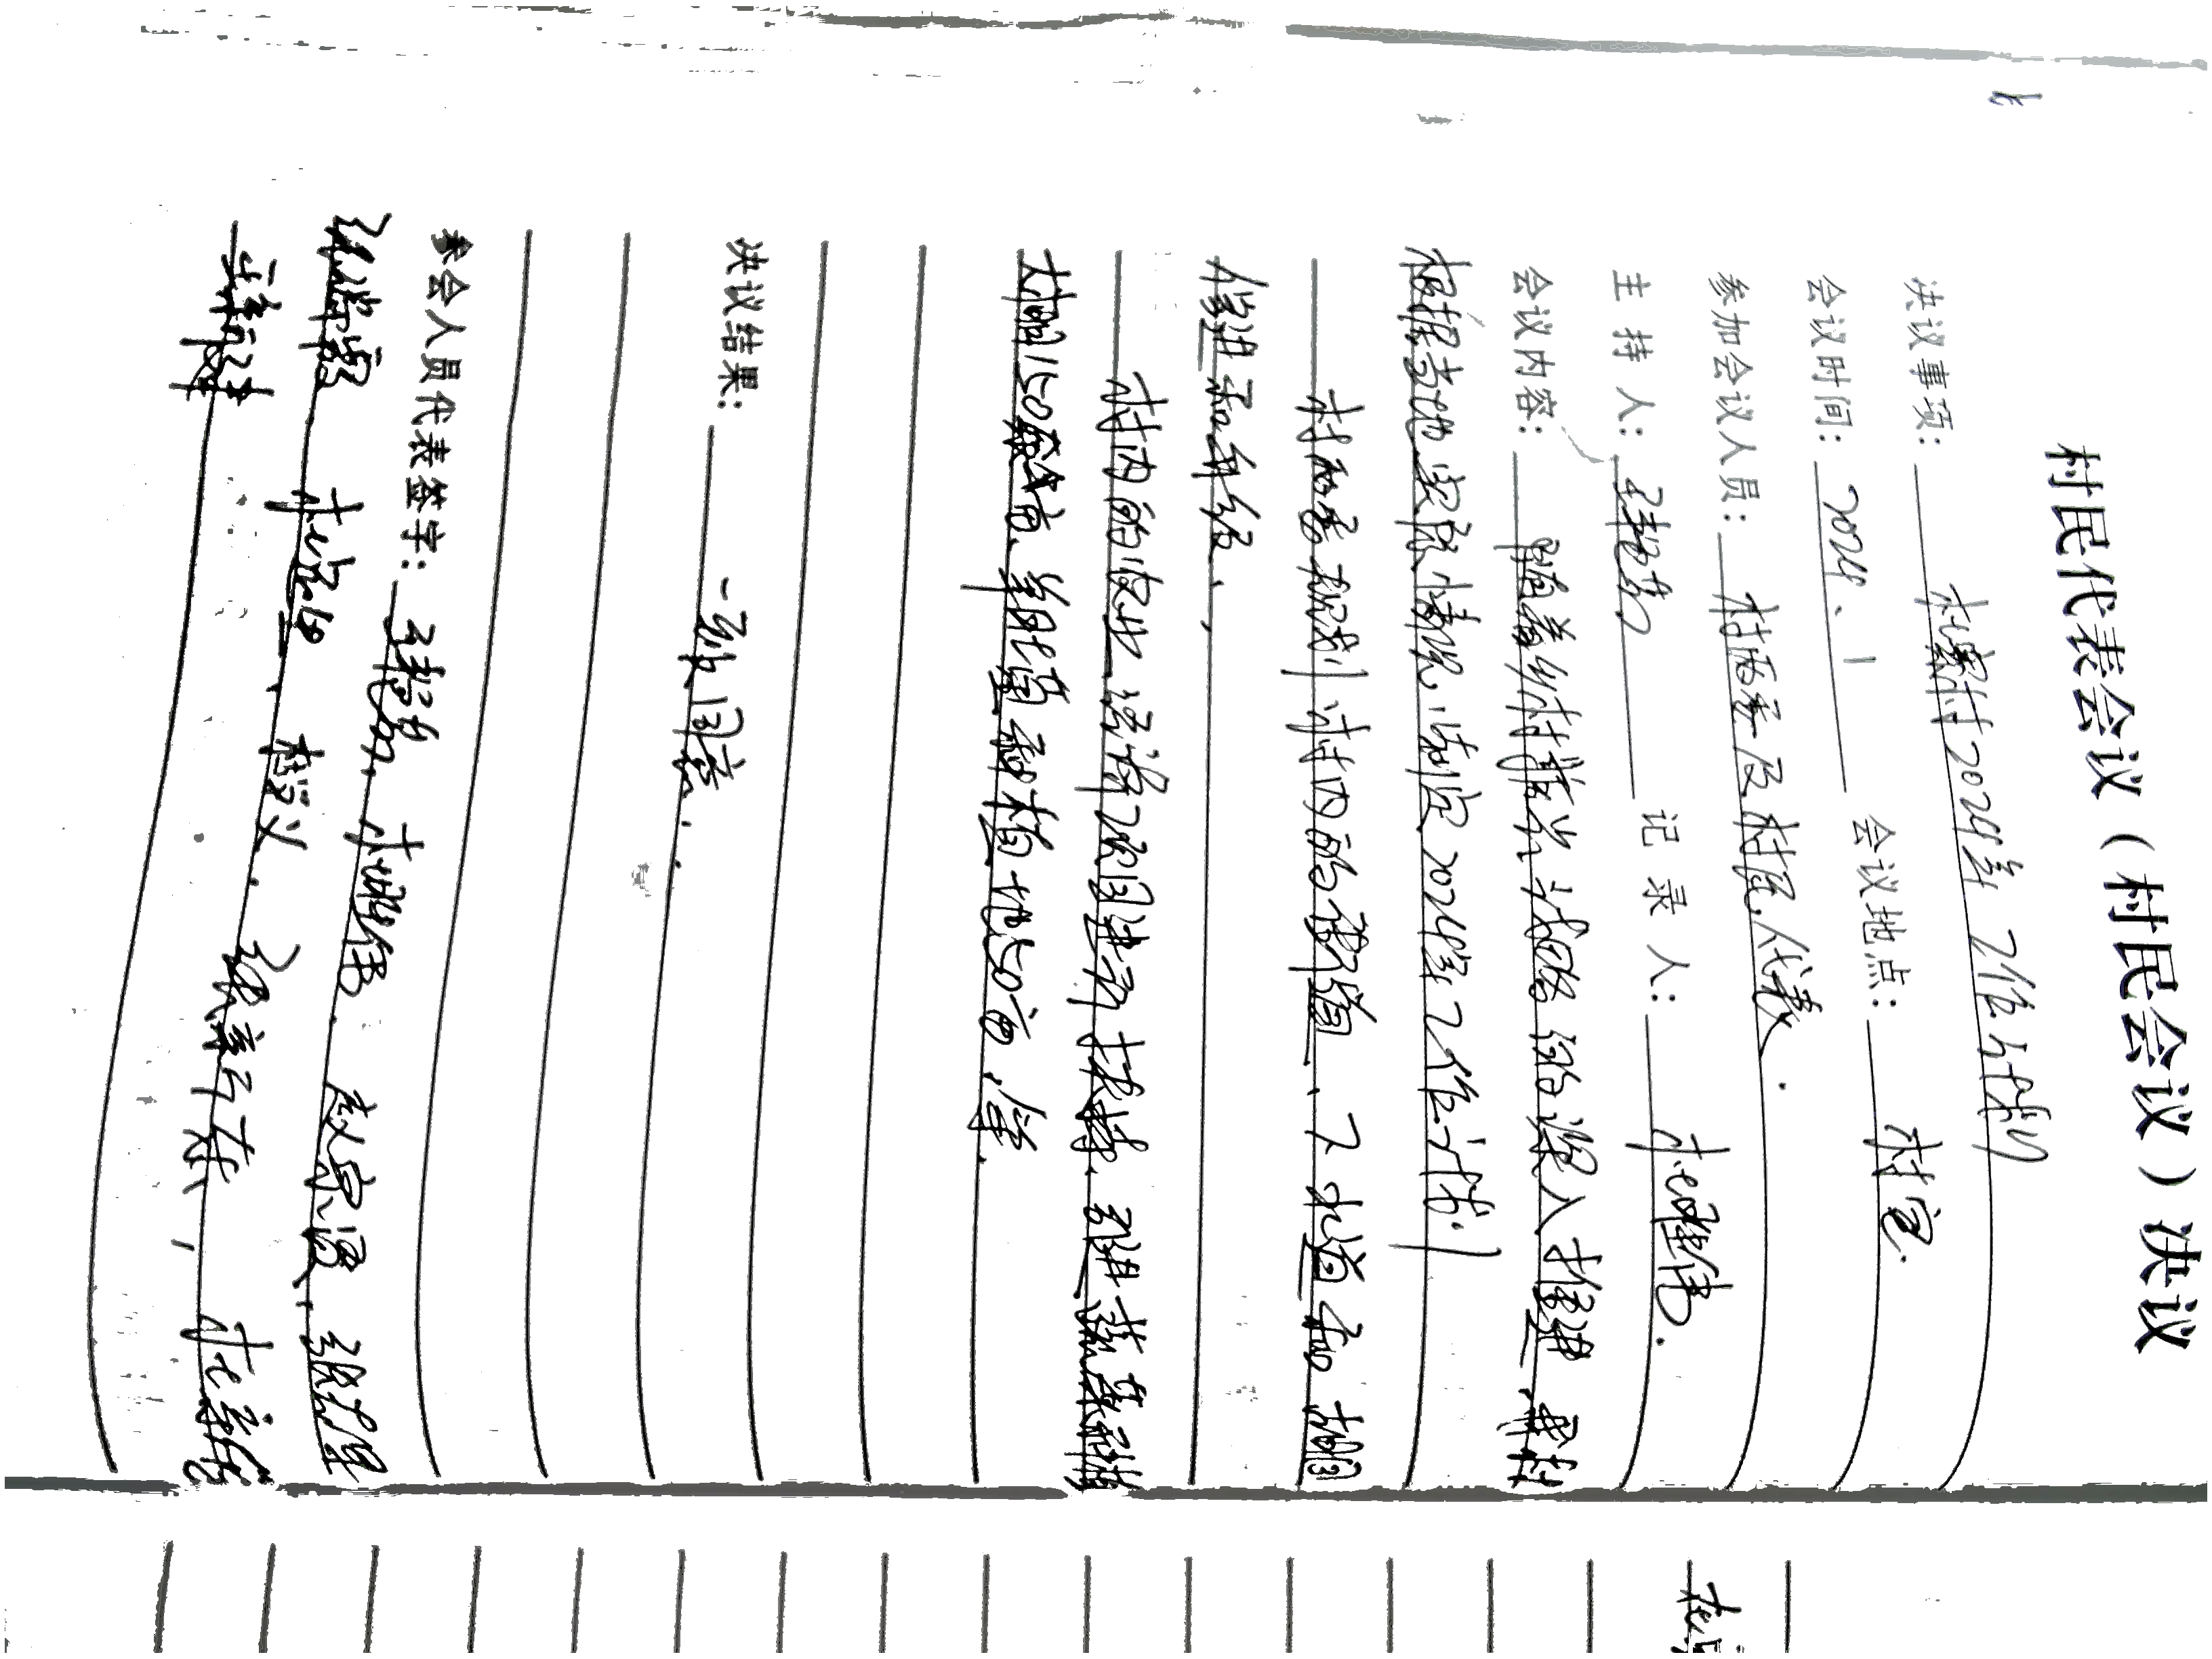 村民代表会议（村民会议）决议
决议事项： 杜寨村2024年工作计划
会议时间： 2024、1 会议地点： 村室.
参加会议人员： 村两委及村民代表.
主持人： 王艳芳 记录人： 杜胜伟.
会议内容： 随着乡村振兴战略的深入推进,我村
根据当地实际情况,制定2024年工作计划
村两委规划村内的街道、下水道和胡同
修进和升级、,
村内的农业、经济项目进行扶持、引进蔬菜种植
大棚150余亩、羊肚菌种植地50亩,等.
决议结果： 一致同意..
参会人员代表签字： 王艳芳, 杜胜伟. 赵宗, 张志
张瑞霞、杜、杜义, 张新东, 杜新
王新建